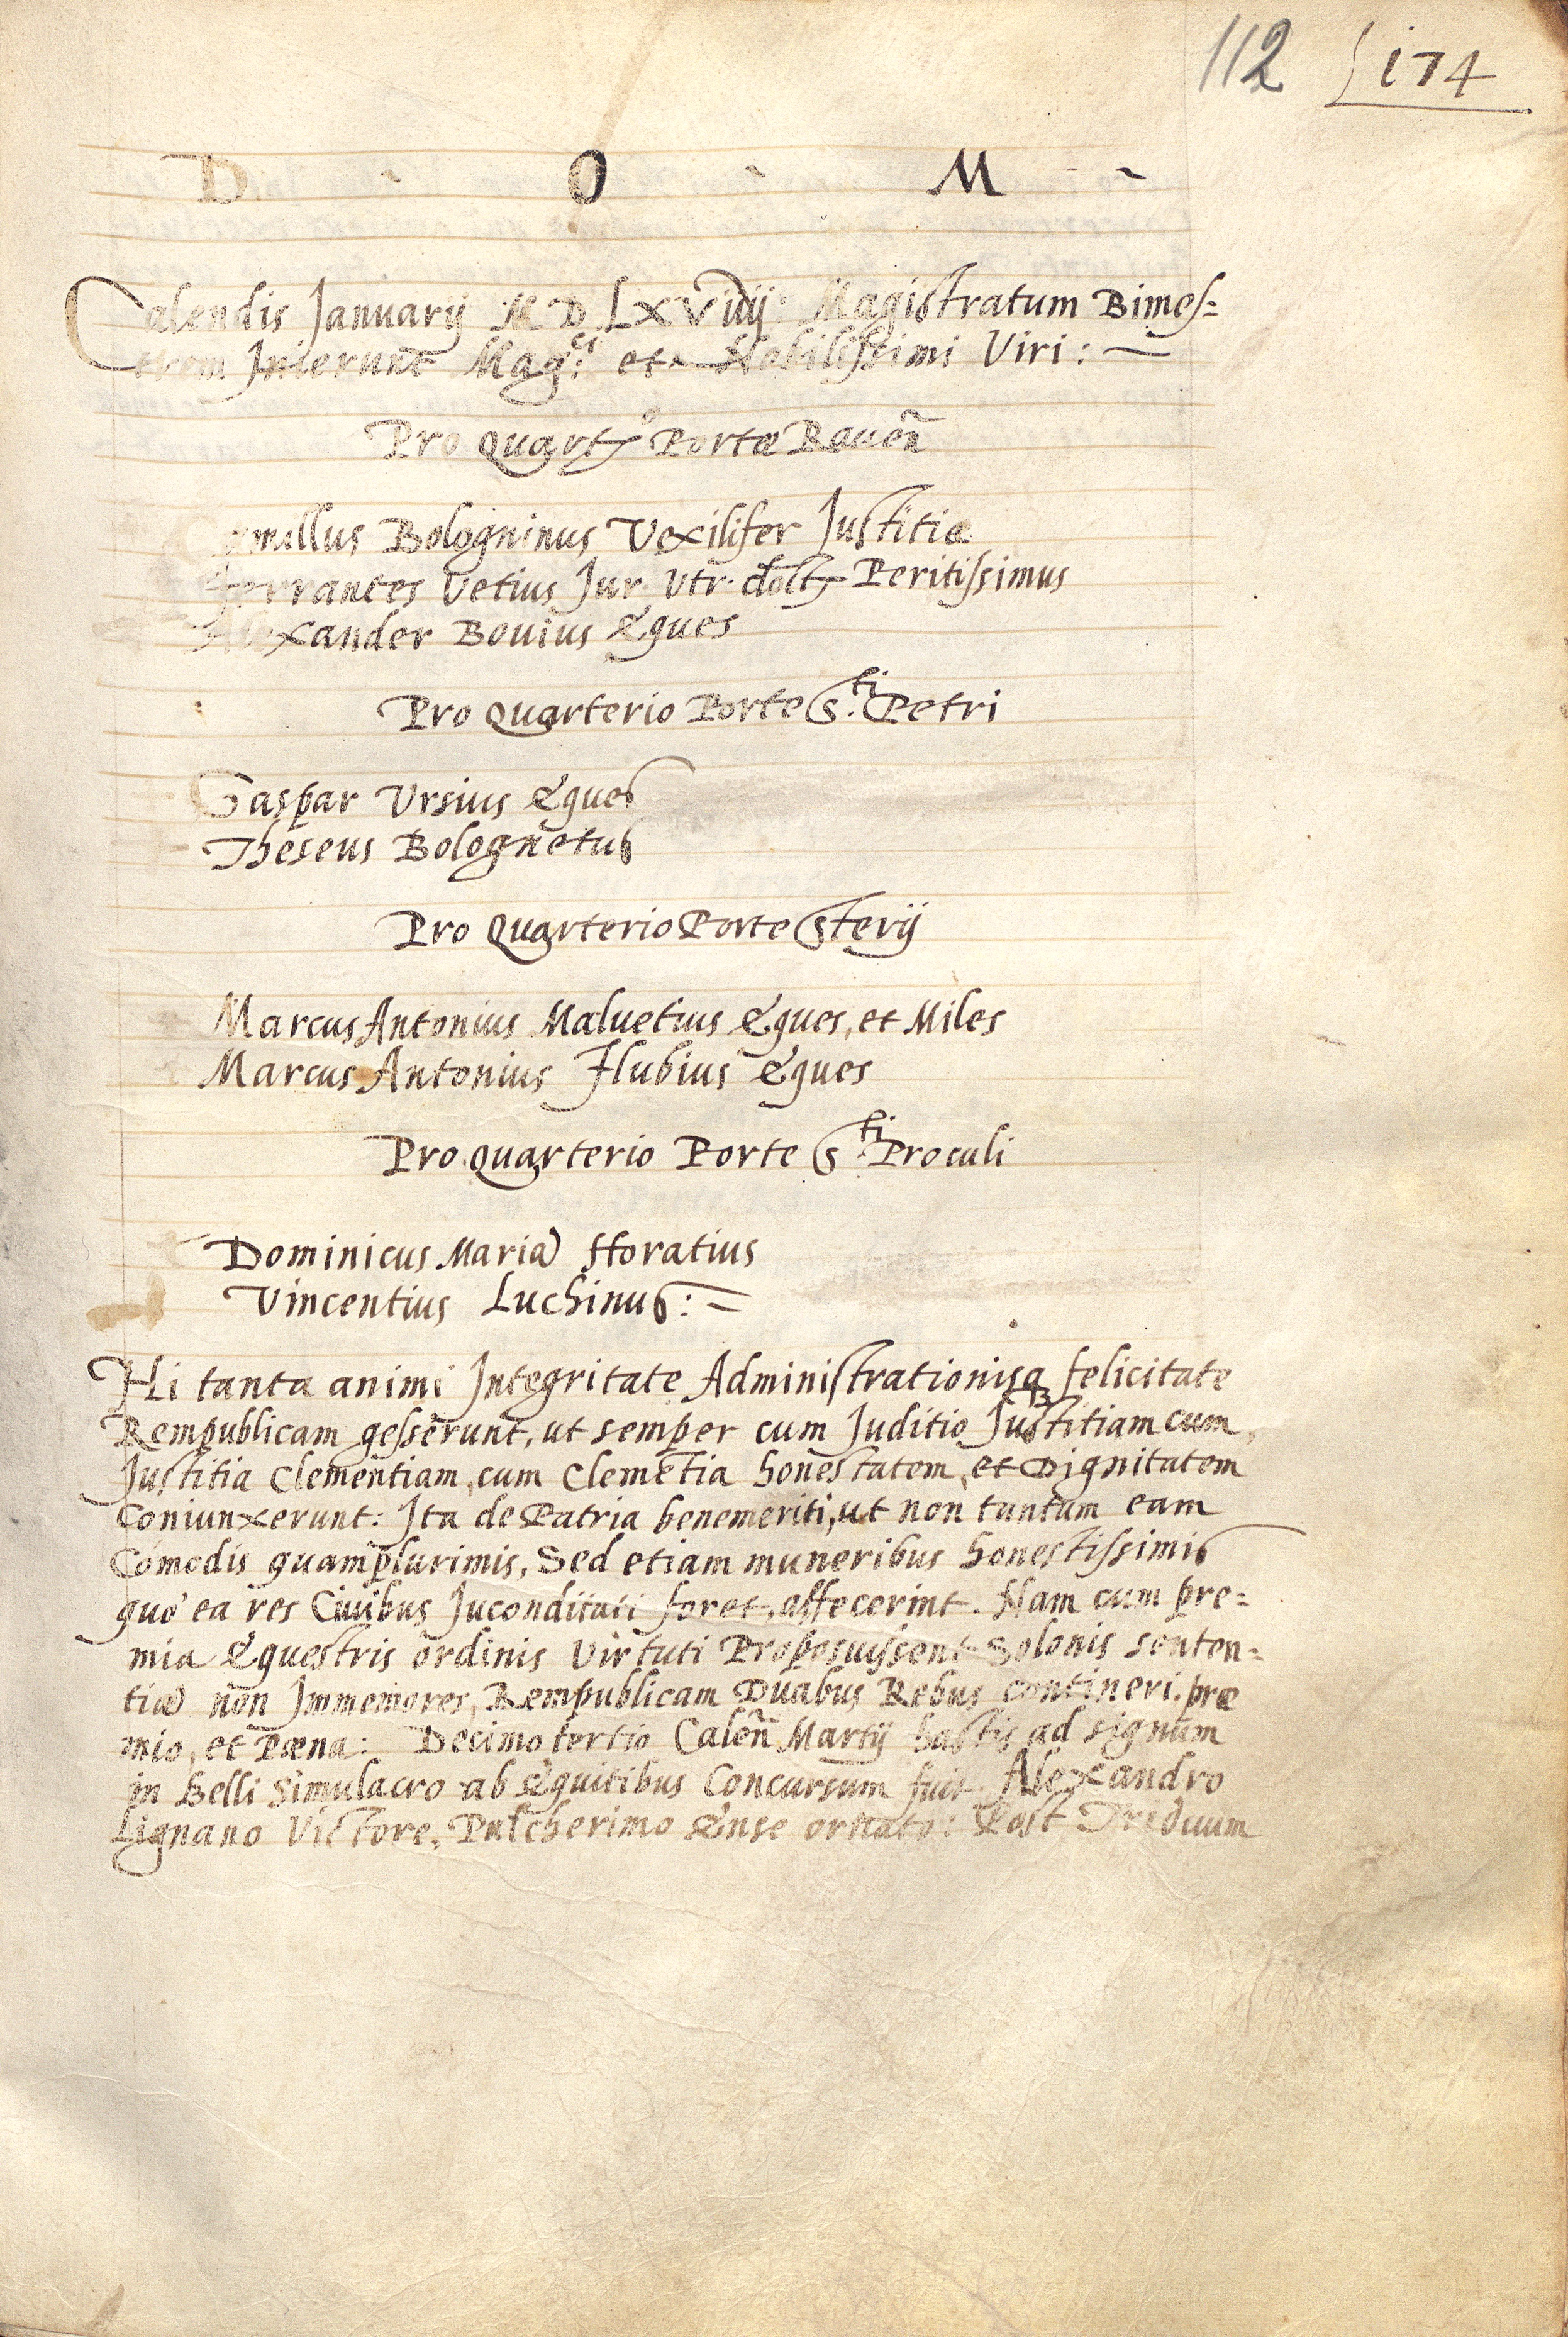 112 174
D . O . M
Calendis Januarij M D LXVIIIJ: Magistratum Bimes=
trem Inierunt Mag.ci et Nobilissimi Viri:
Pro Quart.o Portæ Rauen̄
Camillus Bologninus Vexilifer Justitiæ
Ferrantes Vetius Jur Utr. doct. Peritissimus
Alexander Bouius Eques
Pro Quarterio Porte S.ti Petri
Gaspar Ursius Eques
Theseus Bolognetus
Pro Quarterio Porte Sterij
Marcus Antonius Maluetius Eques, et Miles
Marcus Antonius Flubius Eques
Pro Quarterio Porte S.ti Proculi
Dominicus Maria Horatius
Vincentius Luchinus: =
Hi tanta animi Integritate Administrationisq felicitate
Rempublicam gesserunt, ut semper cum Juditio Justitiam cum,
Justitia Clementiam, cum Clemētia honestatem, et Dignitatem
Coniunxerunt: Ita de Patria benemeriti, ut non tantum eam
Cōmodis quamplurimis, Sed etiam muneribus honestissimis
quò ea res Ciuibus Juconditati foret, affecerint. Nam cum pre=
mia Equestris ordinis Virtuti Proposuissent Solonis senten=
tiæ non Immemores, Rempublicam Duabus Rebus contineri. præ
mio, et Pæna: Decimo tertio Calen̄ Martij hastis ad signum
in Belli Simulacro ab Equitibus Concursum fuit. Alexandro
Lignano Victore, Pulcherimo Ense ornato: Post Triduum